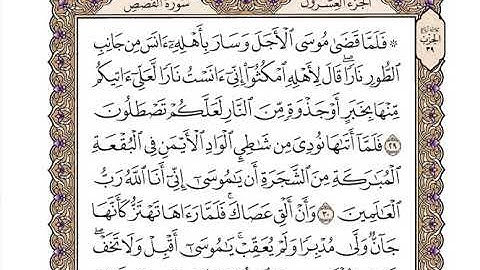 الجزء العشرون
سورة القصص
۞ فَلَمَّا قَضَىٰ مُوسَى ٱلْأَجَلَ وَسَارَ بِأَهْلِهِۦٓ ءَانَسَ مِن جَانِبِ
ٱلطُّورِ نَارًاۖ قَالَ لِأَهْلِهِ ٱمْكُثُوٓا۟ إِنِّىٓ ءَانَسْتُ نَارًا لَّعَلِّىٓ ءَاتِيكُم
مِّنْهَا بِخَبَرٍ أَوْ جَذْوَةٍ مِّنَ ٱلنَّارِ لَعَلَّكُمْ تَصْطَلُونَ
٢٩ فَلَمَّآ أَتَىٰهَا نُودِىَ مِن شَٰطِئِ ٱلْوَادِ ٱلْأَيْمَنِ فِى ٱلْبُقْعَةِ
ٱلْمُبَٰرَكَةِ مِنَ ٱلشَّجَرَةِ أَن يَٰمُوسَىٰٓ إِنِّىٓ أَنَا ٱللَّهُ رَبُّ
ٱلْعَٰلَمِينَ ٣٠ وَأَنْ أَلْقِ عَصَاكَۖ فَلَمَّا رَءَاهَا تَهْتَزُّ كَأَنَّهَا
جَآنٌّ وَلَّىٰ مُدْبِرًا وَلَمْ يُعَقِّبْۚ يَٰمُوسَىٰٓ أَقْبِلْ وَلَا تَخَفْۖ